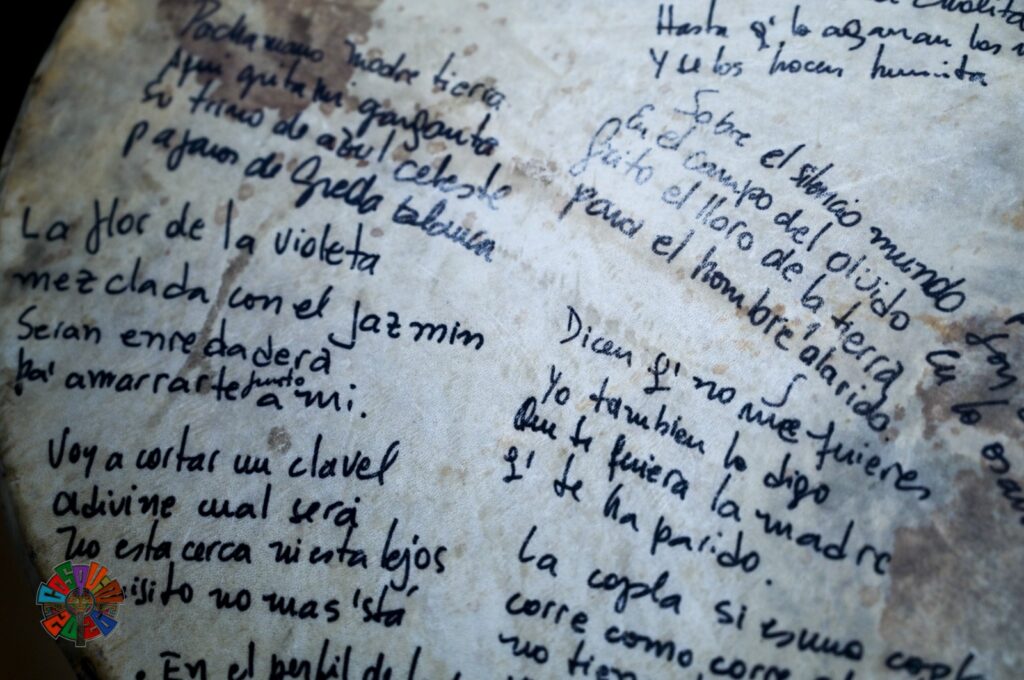 Pachamama madre tierra
Aqui grita mi garganta
Su trino de azul celeste
pajaros de Greda
La flor de la violeta
mezclada con el jazmin
Seran enredadera
pa' amarrarte junto a mi.
Voy a cortar un clavel
adivine cual será
no esta cerca ni esta lejos
no mas 'stá
En el perfil de
Hasta q' lo
Y se los hacen humita
Sobre el silencio mundo
En el campo del olvido
Grito el lloro de la tierra
para el hombre alarido.
Dicen q' no me quieres
Yo tambien lo digo
Que te quiera la madre
q' te ha parido.
La copla si es una
corre como corre
no